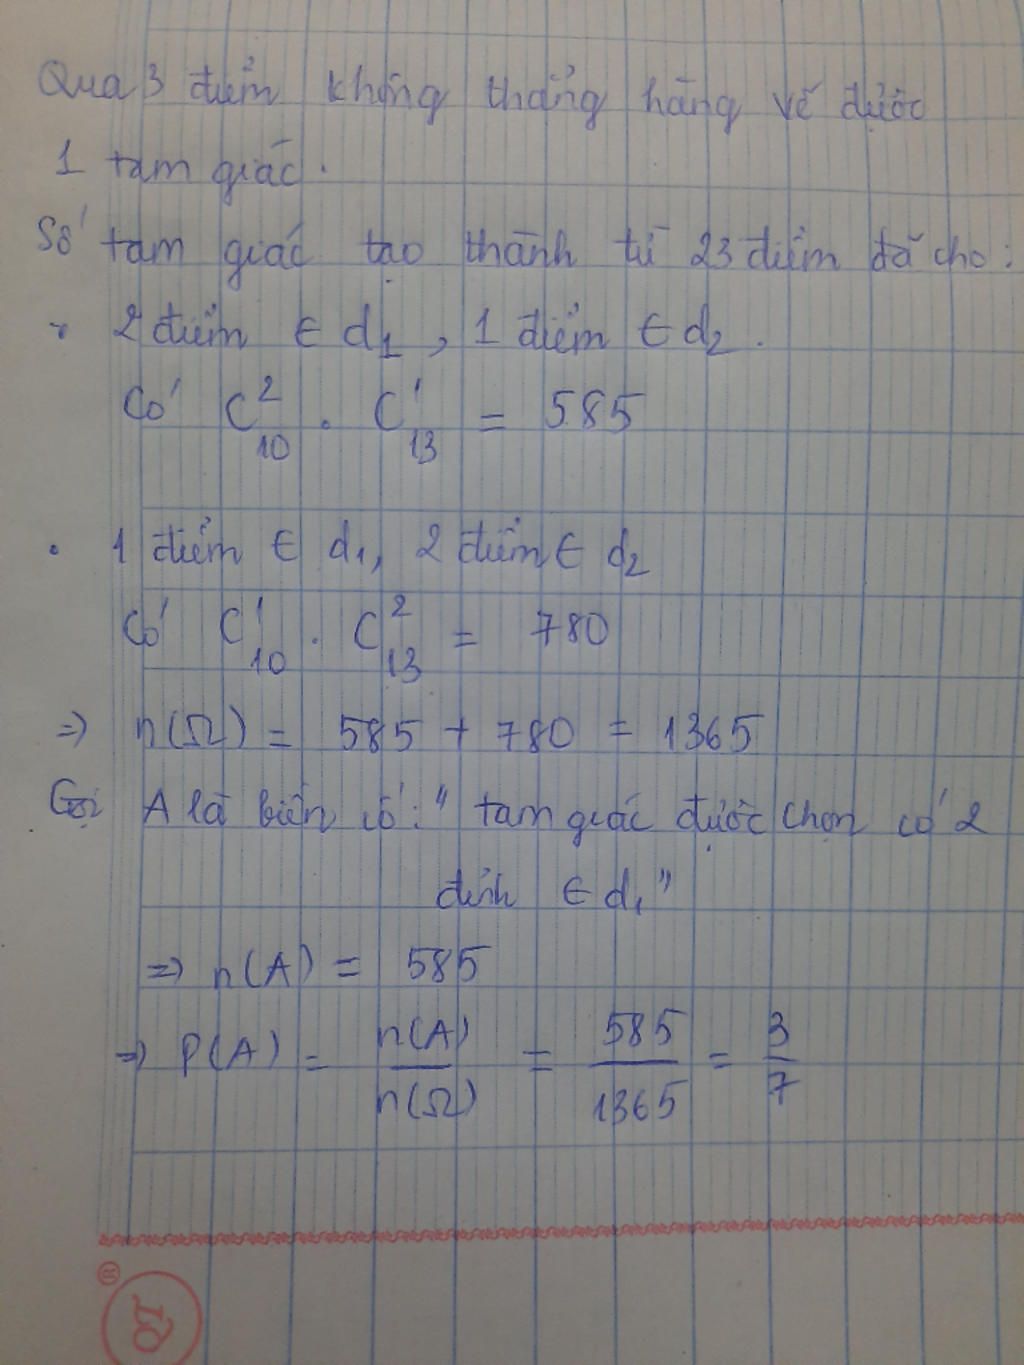 Qua 3 điểm không thẳng hàng vẽ được
1 tam giác.
Số tam giác tạo thành từ 23 điểm đã cho:
• 2 điểm ∈ d₁, 1 điểm ∈ d₂.
Có C²₁₀ . C¹₁₃ = 585
• 1 điểm ∈ d₁, 2 điểm ∈ d₂
Có C¹₁₀ . C²₁₃ = 780
=> n(Ω) = 585 + 780 = 1365
Gọi A là biến cố: "tam giác được chọn có 2
đỉnh ∈ d₁"
=> n(A) = 585
=> P(A) = n(A)/n(Ω) = 585/1365 = 3/7